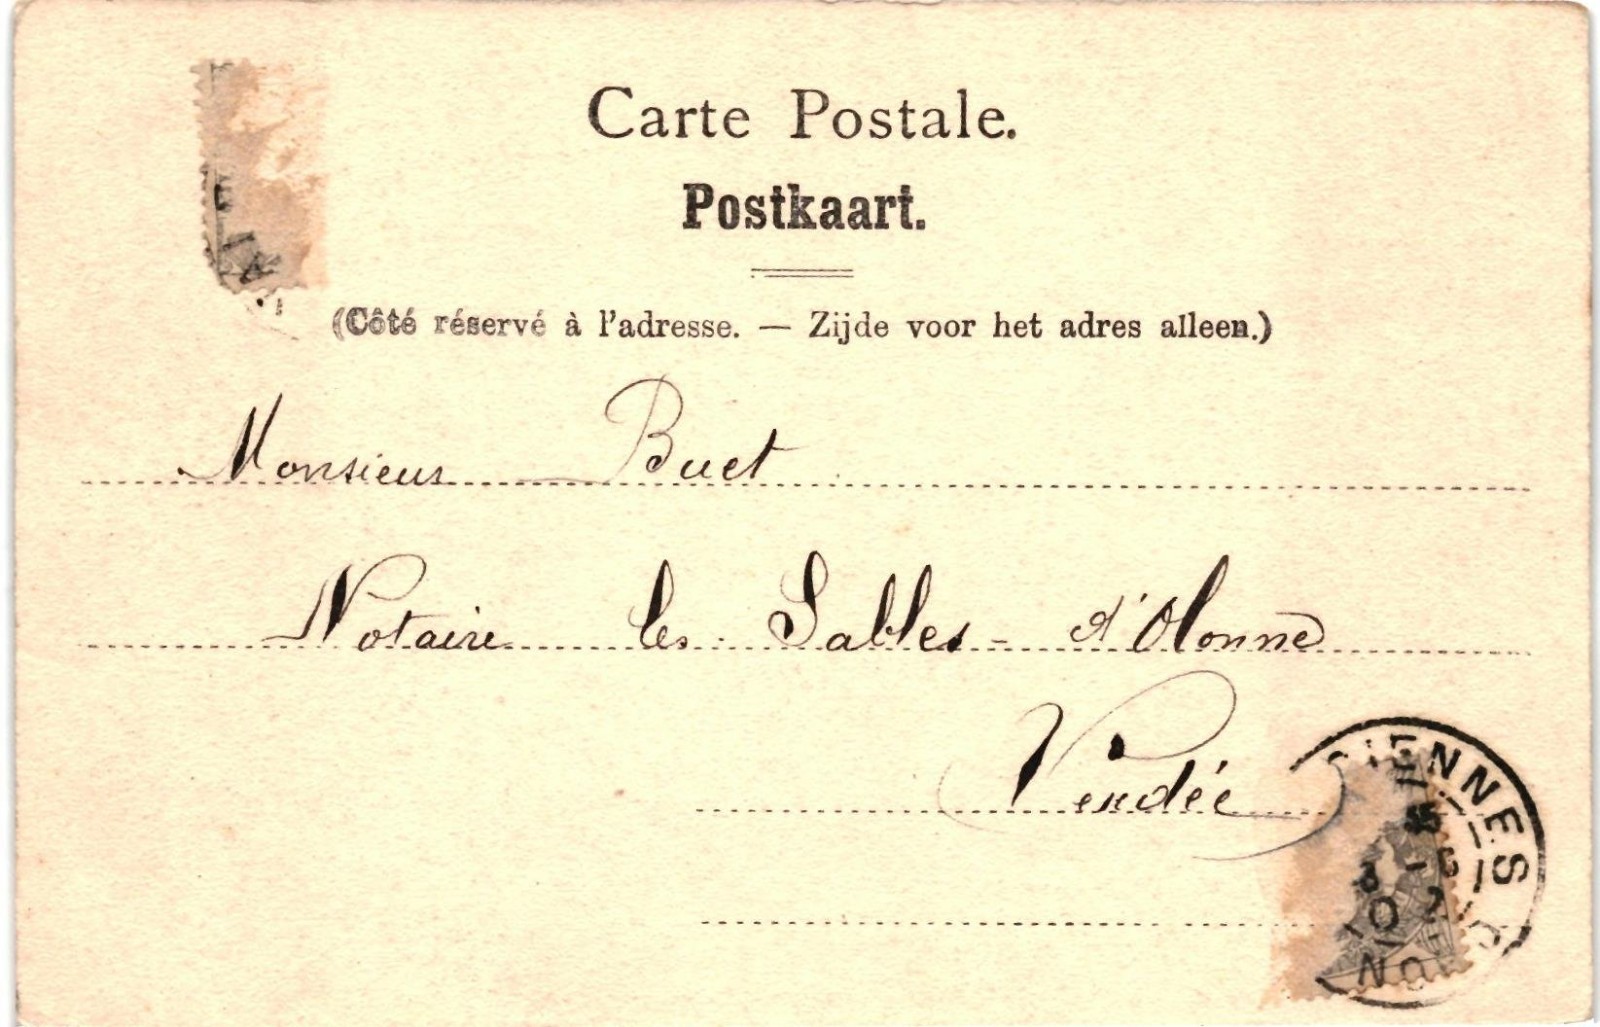 Carte Postale.
Postkaart.
(Côté réservé à l'adresse. — Zijde voor het adres alleen.)
Monsieur Buet
Notaire les Sables-d'Olonne
Vendée
IENNES